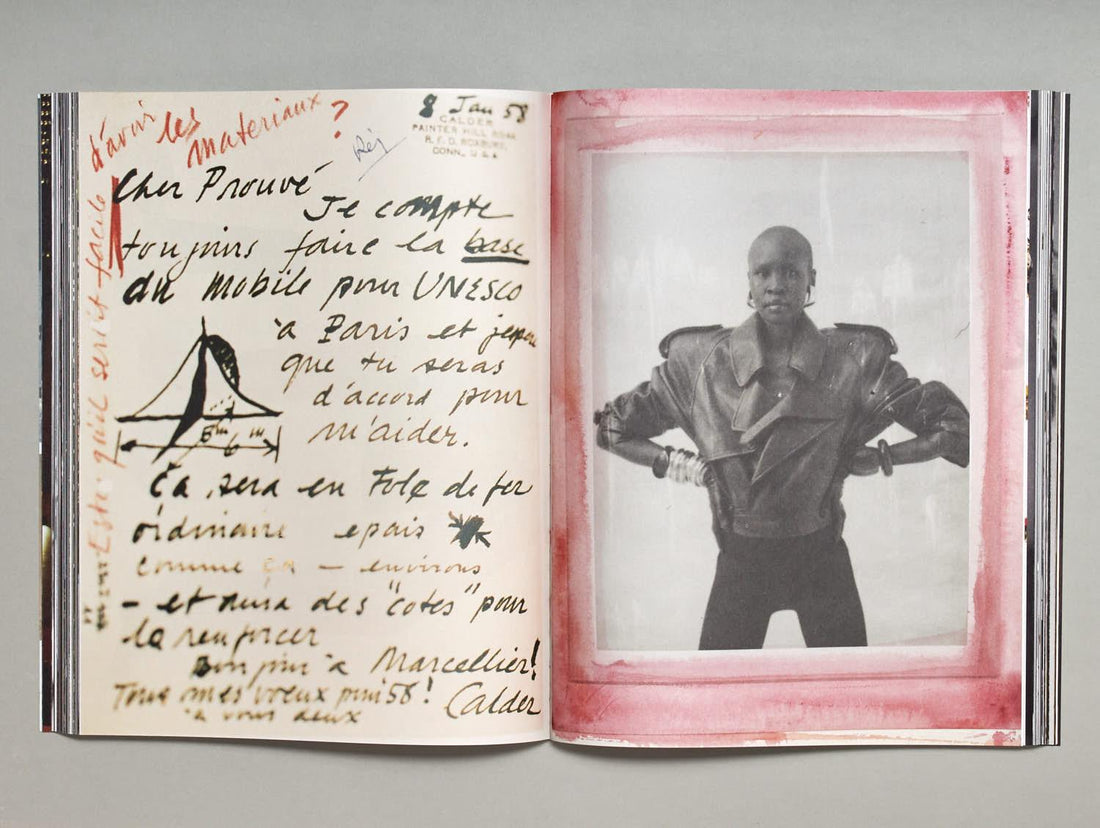 d'avoir les
materiaux ?
8 Jan 58
CALDER
PAINTER HILL ROAD
R.F.D. ROXBURY,
CONN. U.S.A.
Cher Prouvé
Je compte
toujours faire la base
du Mobile pour UNESCO
à Paris et j'espere
que tu seras
d'accord pour
m'aider.
6 m
Ça sera en Tole de fer
ordinaire epais
comme ça - environs
- et aura des "cotes" pour
le renforcer
Bonjour à Marcellier!
Tous mes voeux pour 58! Calder
à vous deux
Est-ce qu'il serait facile